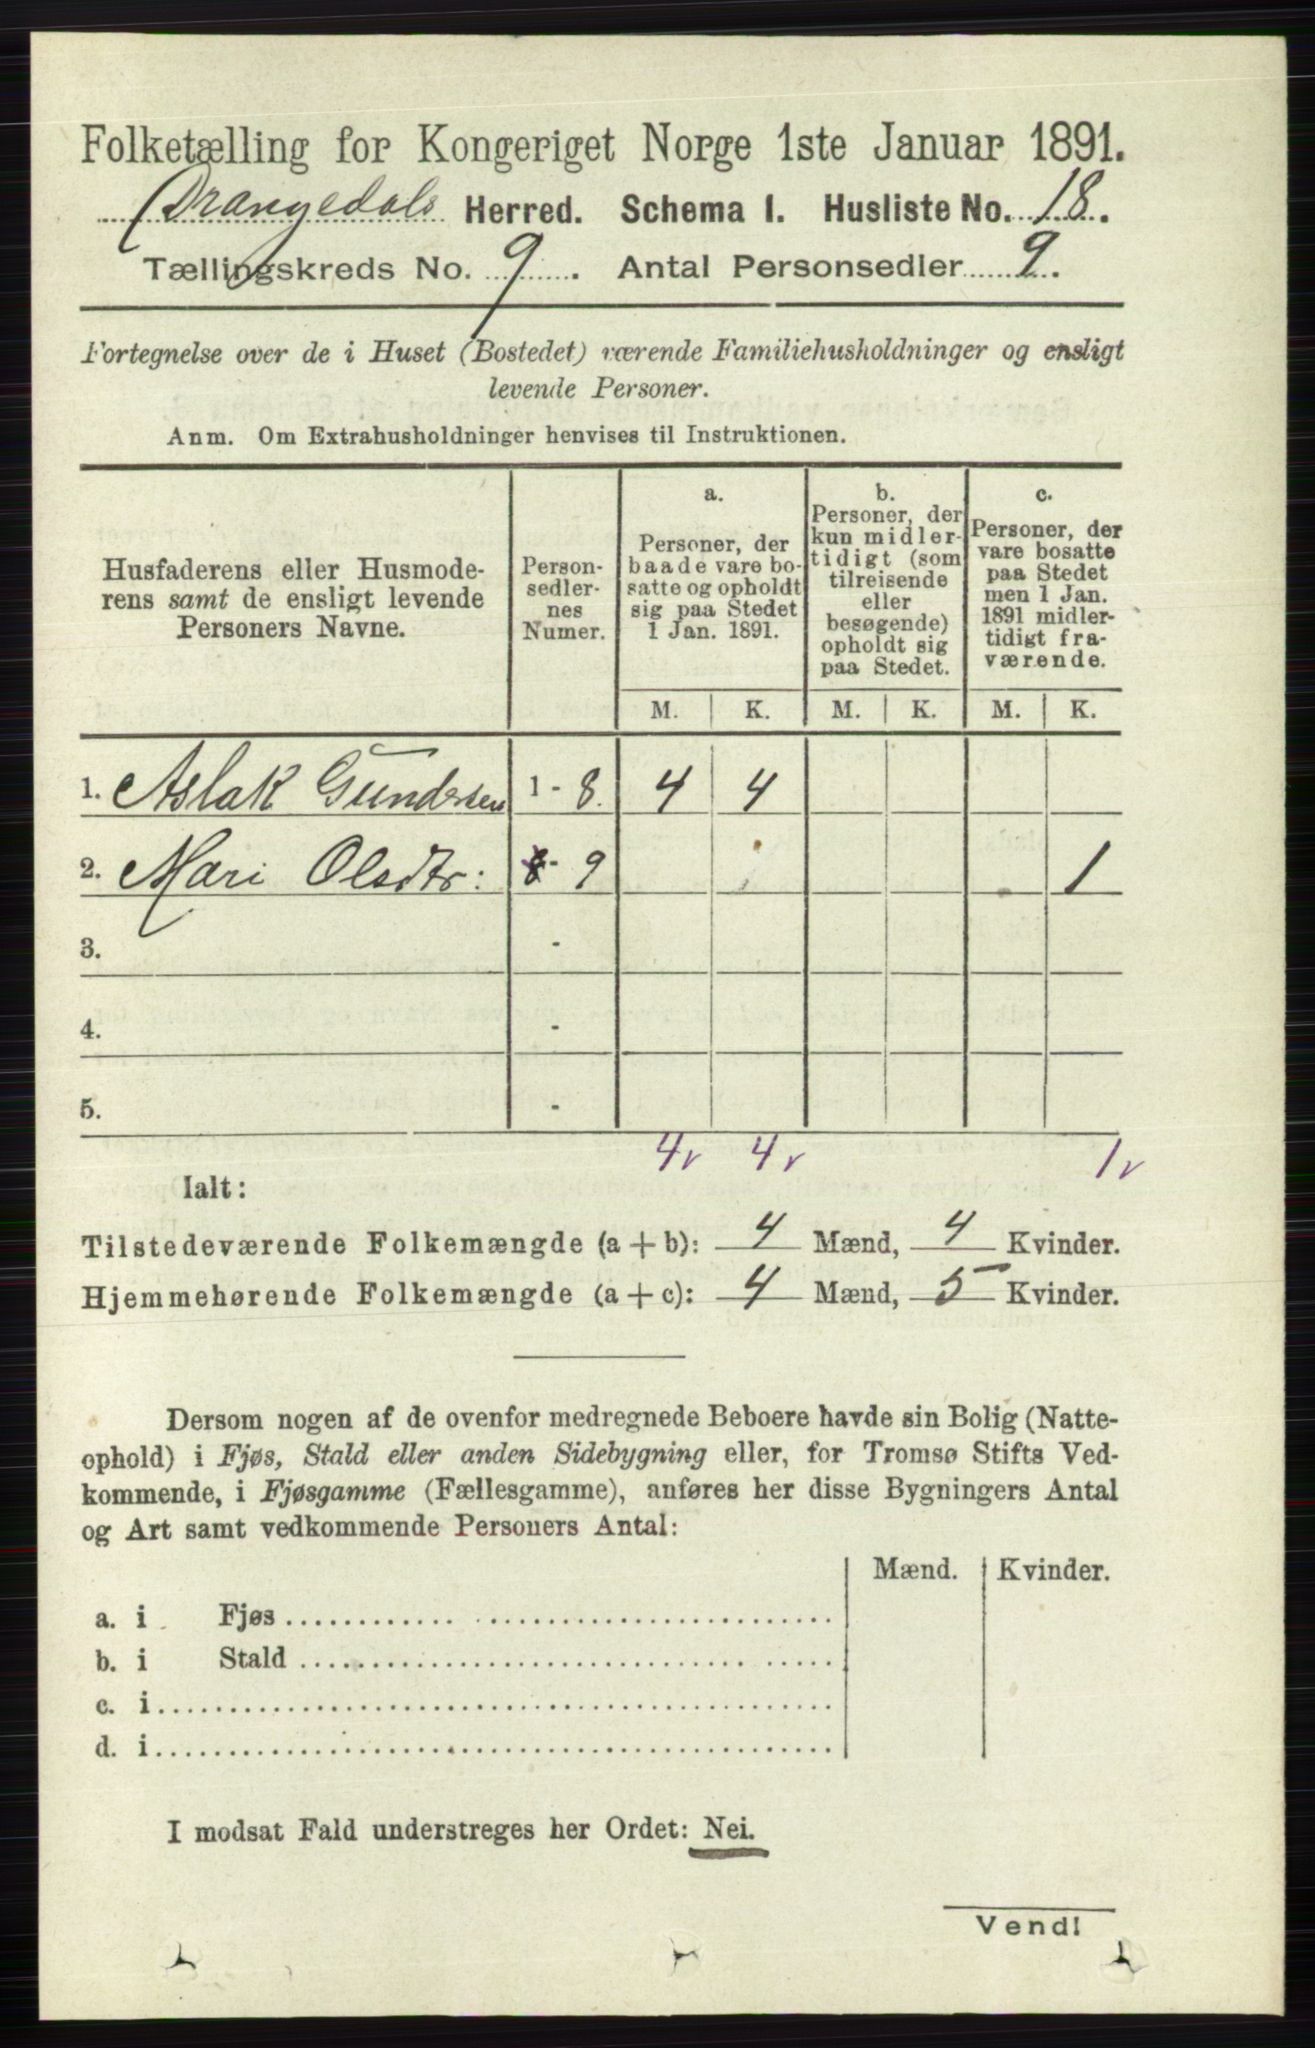 Folketælling for Kongeriget Norge 1ste Januar 1891.
Drangedals Herred. Schema I. Husliste No. 18.
Tællingskreds No. 9. Antal Personsedler 9.
Fortegnelse over de i Huset (Bostedet) værende Familiehusholdninger og ensligt
levende Personer.
Anm. Om Extrahusholdninger henvises til Instruktionen.
Husfaderens eller Husmode-
rens samt de ensligt levende
Personers Navne.
Person-
sedler-
nes
Numer.
a.
Personer, der
baade vare bo-
satte og opholdt
sig paa Stedet
1 Jan. 1891.
b.
Personer, der
kun midler-
tidigt (som
tilreisende
eller
besøgende)
opholdt sig
paa Stedet.
c.
Personer, der
vare bosatte
paa Stedet
men 1 Jan.
1891 midler-
tidigt fra-
værende.
M. K. M. K. M. K.
1. Aslak Gundersen 1 - 8. 4 4
2. Mari Olsdtr: - 9 1
3. -
4. -
5. -
4 4 1
Ialt:
Tilstedeværende Folkemængde (a + b): 4 Mænd, 4 Kvinder.
Hjemmehørende Folkemængde (a + c): 4 Mænd, 5 Kvinder.
Dersom nogen af de ovenfor medregnede Beboere havde sin Bolig (Natte-
ophold) i Fjøs, Stald eller anden Sidebygning eller, for Tromsø Stifts Ved-
kommende, i Fjøsgamme (Fællesgamme), anføres her disse Bygningers Antal
og Art samt vedkommende Personers Antal:
Mænd. Kvinder.
a. i Fjøs
b. i Stald
c. i
d. i
I modsat Fald understreges her Ordet: Nei.
Vend!